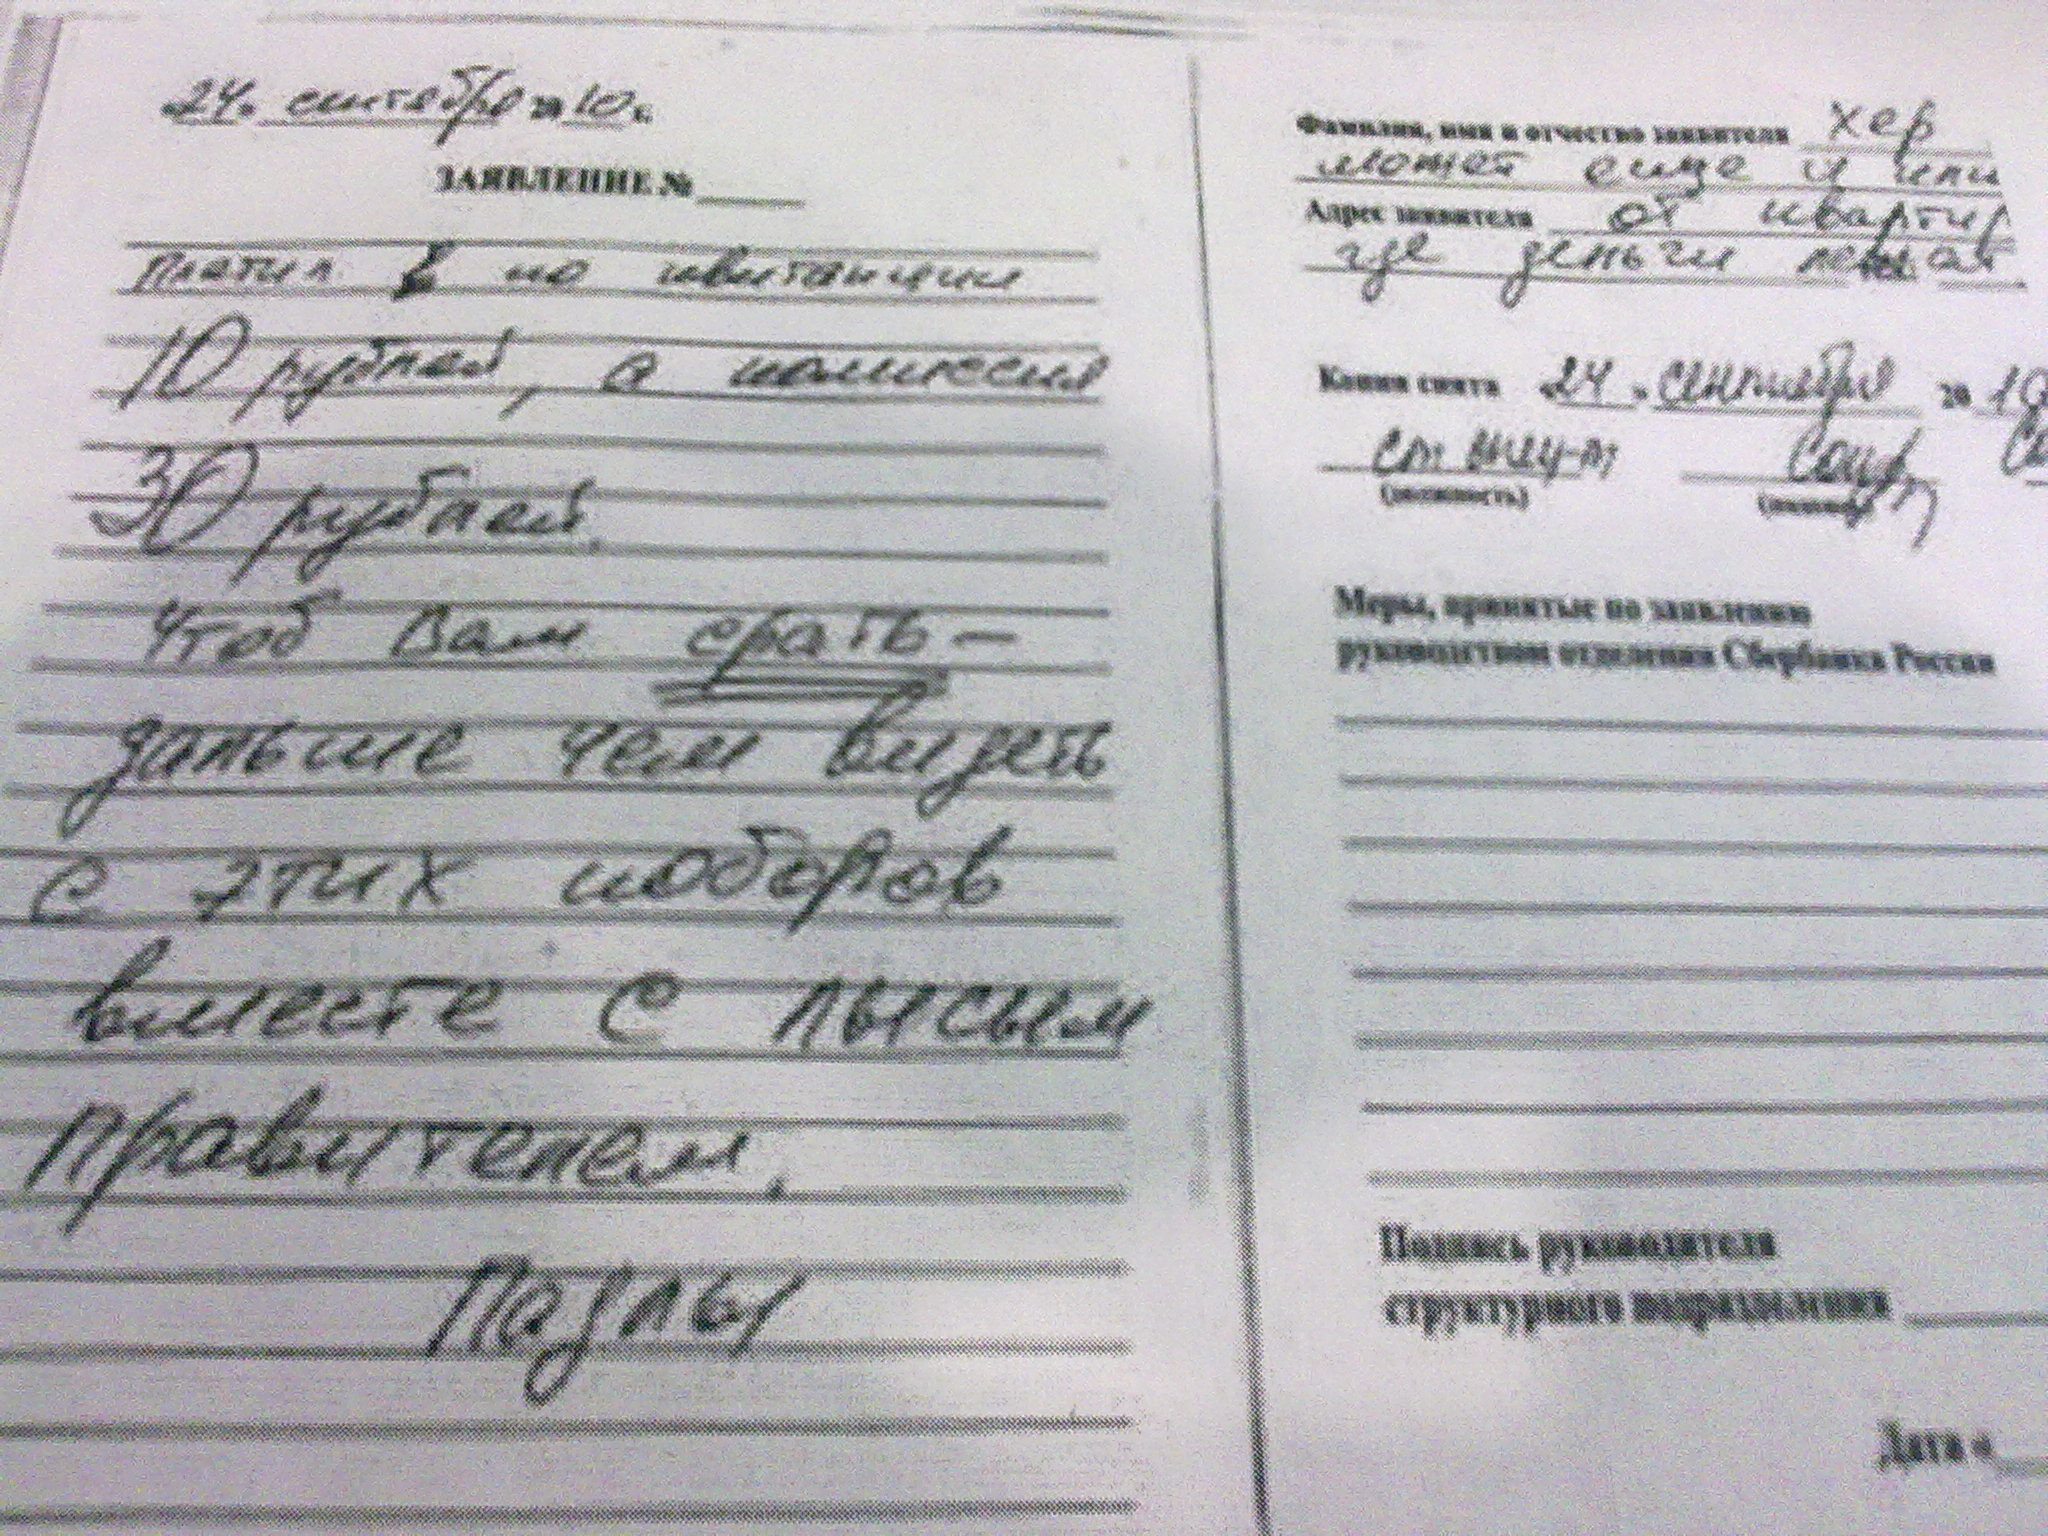 «24» сентября 2010 г.
ЗАЯВЛЕНИЕ №
платил по квитанции
10 рублей, а комиссия
30 рублей.
Чтоб Вам срать –
дальше чем видеть
с этих поборов
вместе с лысым
правителем.
Падлы
Фамилия, имя и отчество заявителя хер
может еще и
Адрес заявителя от квартир
где деньги лежат
Копия снята «24» сентября 20 10
(должность) (подпись)
Меры, принятые по заявлению
руководством отделения Сбербанка России
Подпись руководителя
структурного подразделения
Дата «